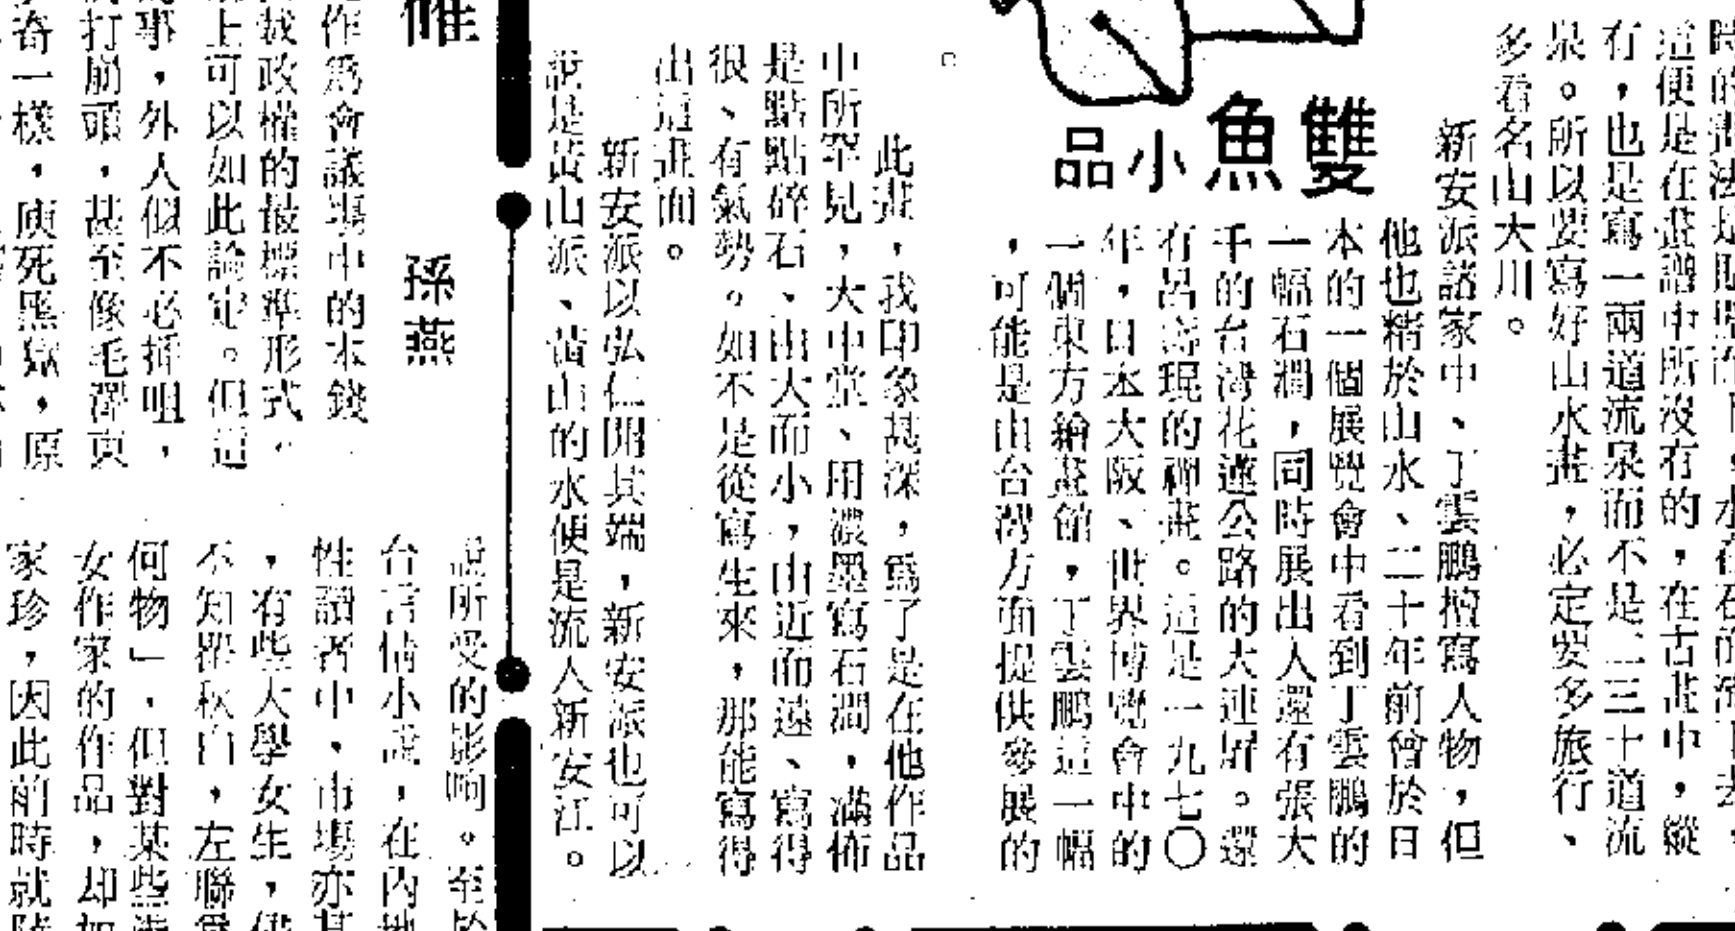 道便是在畫譜中所沒有的，在古畫中，縱
有，也是寫一兩道流泉而不是二三十道流
泉。所以要寫好山水畫，必定要多旅行、
多看名山大川。
新安派諸家中、丁雲鵬擅寫人物，但
他也精於山水、二十年前曾於日
本的一個展覽會中看到丁雲鵬的
一幅石澗，同時展出人還有張大
千的台灣花蓮公路的大連屏。還
有呂壽琨的禪畫。這是一九七〇
年，日本大阪、世界博覽會中的
一個東方繪畫館，丁雲鵬這一幅
，可能是由台灣方面提供參展的
。
雙魚小品
此畫，我印象甚深，為了是在他作品
中所罕見，大中堂、用濃墨寫石澗，滿佈
是點點碎石、由大而小，由近而遠、寫得
很、有氣勢。如不是從寫生來，那能寫得
出這畫面。
新安派以弘仁開其端，新安派也可以
說是黃山派、黃山的水便是流入新安江。
孫燕
作為會議場中的本錢
政權的最標準形式。
上可以如此論定。但這
事，外人似不必插咀，
打崩頭，甚至像毛澤東
奇一樣，庾死黑獄，原
說所受的影响。至於
台言情小說，在內地
性讀者中，市場亦甚
，有些大學女生，
不知瞿秋白，左聯為
何物」，但對某些
女作家的作品，却如
家珍，因此前時就